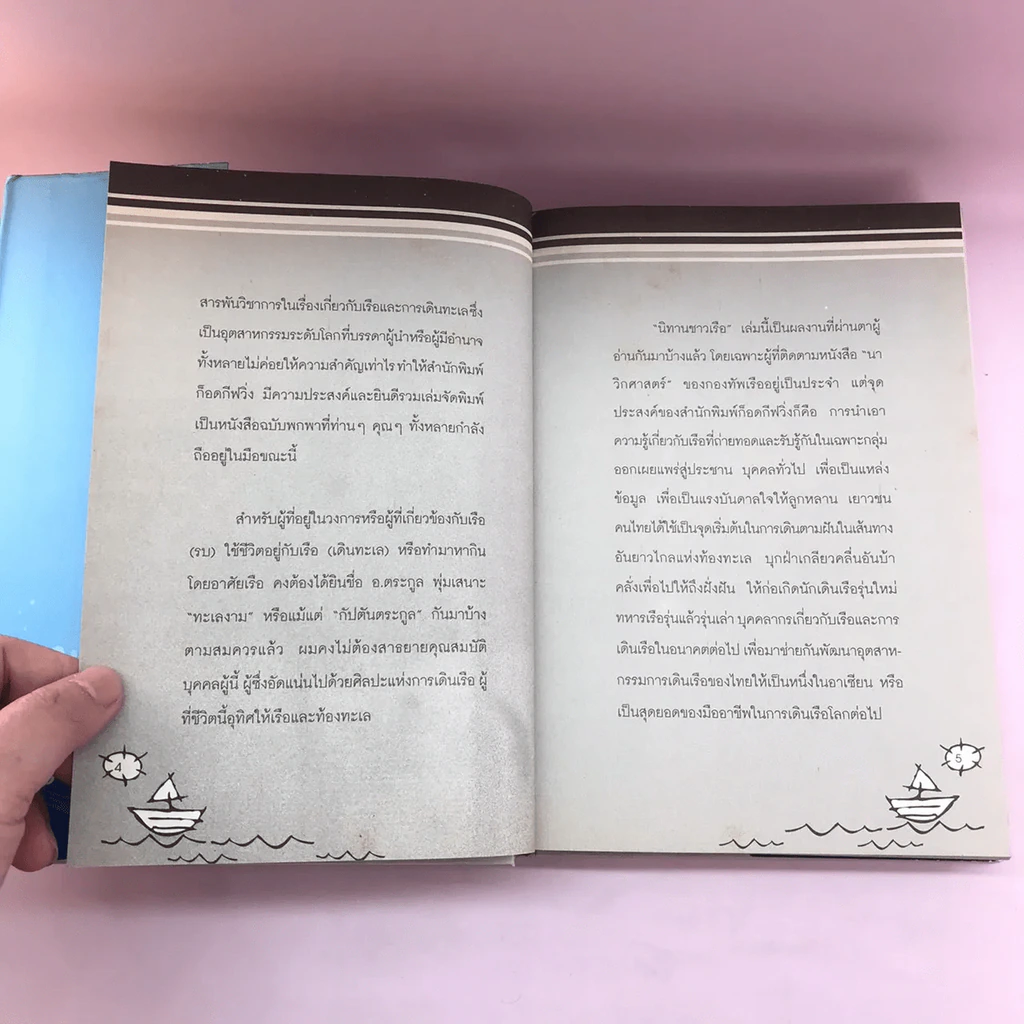 สารพันวิชาการในเรื่องเกี่ยวกับเรือและการเดินทะเลซึ่ง
เป็นอุตสาหกรรมระดับโลกที่บรรดาผู้นำหรือผู้มีอำนาจ
ทั้งหลายไม่ค่อยให้ความสำคัญเท่าไร ทำให้สำนักพิมพ์
ก็อดกีฟวิ่ง มีความประสงค์และยินดีรวมเล่มจัดพิมพ์
เป็นหนังสือฉบับพกพาที่ท่านๆ คุณๆ ทั้งหลายกำลัง
ถืออยู่ในมือขณะนี้
สำหรับผู้ที่อยู่ในวงการหรือผู้ที่เกี่ยวข้องกับเรือ
(รบ) ใช้ชีวิตอยู่กับเรือ (เดินทะเล) หรือทำมาหากิน
โดยอาศัยเรือ คงต้องได้ยินชื่อ อ.ตระกูล พุ่มเสนาะ
"ทะเลงาม" หรือแม้แต่ "กัปตันตระกูล" กันมาบ้าง
ตามสมควรแล้ว ผมคงไม่ต้องสาธยายคุณสมบัติ
บุคคลผู้นี้ ผู้ซึ่งอัดแน่นไปด้วยศิลปะแห่งการเดินเรือ ผู้
ที่ชีวิตนี้อุทิศให้เรือและท้องทะเล
4
"นิทานชาวเรือ" เล่มนี้เป็นผลงานที่ผ่านตาผู้
อ่านกันมาบ้างแล้ว โดยเฉพาะผู้ที่ติดตามหนังสือ "นา
วิกศาสตร์" ของกองทัพเรืออยู่เป็นประจำ แต่จุด
ประสงค์ของสำนักพิมพ์ก็อดกีฟวิ่งก็คือ การนำเอา
ความรู้เกี่ยวกับเรือที่ถ่ายทอดและรับรู้กันในเฉพาะกลุ่ม
ออกเผยแพร่สู่ประชาน บุคคลทั่วไป เพื่อเป็นแหล่ง
ข้อมูล เพื่อเป็นแรงบันดาลใจให้ลูกหลาน เยาวชน
คนไทยได้ใช้เป็นจุดเริ่มต้นในการเดินตามฝันในเส้นทาง
อันยาวไกลแห่งท้องทะเล บุกฝ่าเกลียวคลื่นอันบ้า
คลั่งเพื่อไปให้ถึงฝั่งฝัน ให้ก่อเกิดนักเดินเรือรุ่นใหม่
ทหารเรือรุ่นแล้วรุ่นเล่า บุคคลากรเกี่ยวกับเรือและการ
เดินเรือในอนาคตต่อไป เพื่อมาช่วยกันพัฒนาอุตสาห-
กรรมการเดินเรือของไทยให้เป็นหนึ่งในอาเซียน หรือ
เป็นสุดยอดของมืออาชีพในการเดินเรือโลกต่อไป
5